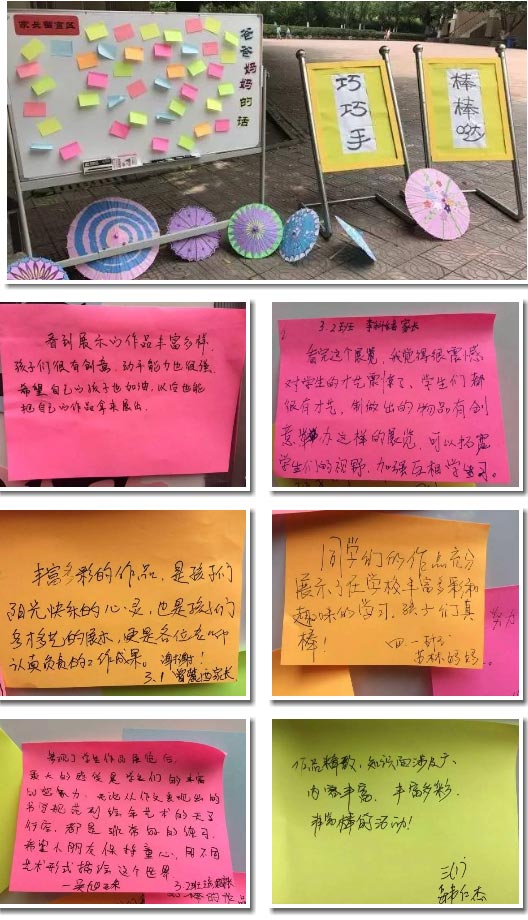 家长留言区
爸爸妈妈的话
巧巧手
棒棒哒
看到展示的作品丰富多样,
孩子们很有创意,动手能力也很强。
希望自己的孩子也加油,以后也能
把自己的作品拿来展出.
3.2班 家长
看完这个展览,我觉得很震撼
对学生的才艺震撼了,学生们都
很有才艺,制做出的物品有创
意,办这样的展览,可以拓宽
学生们的视野,加强互相学习。
丰富多彩的作品,是孩子们
阳光快乐的心灵,也是孩子们
多才多艺的展示,更是各位老师
认真负责的工作成果。谢谢!
3.1 家长
同学们的作品充分
展示了在学校丰富多彩和
趣味的学习.孩子们真
棒!
四一班
苏林妈妈.
努力
参观了学生作品展览后,
最大的感受是学生们的丰富
创造魅力,无论从作文表现出的
书写规范到绘画艺术的天马
行空,都是非常好的练习,
希望小朋友保持童心,用不同
艺术形式描绘这个世界
3.2班
作品精致,知识面涉及广,
内容丰富、丰富多彩.
非常棒的活动!
三(1)
仁杰